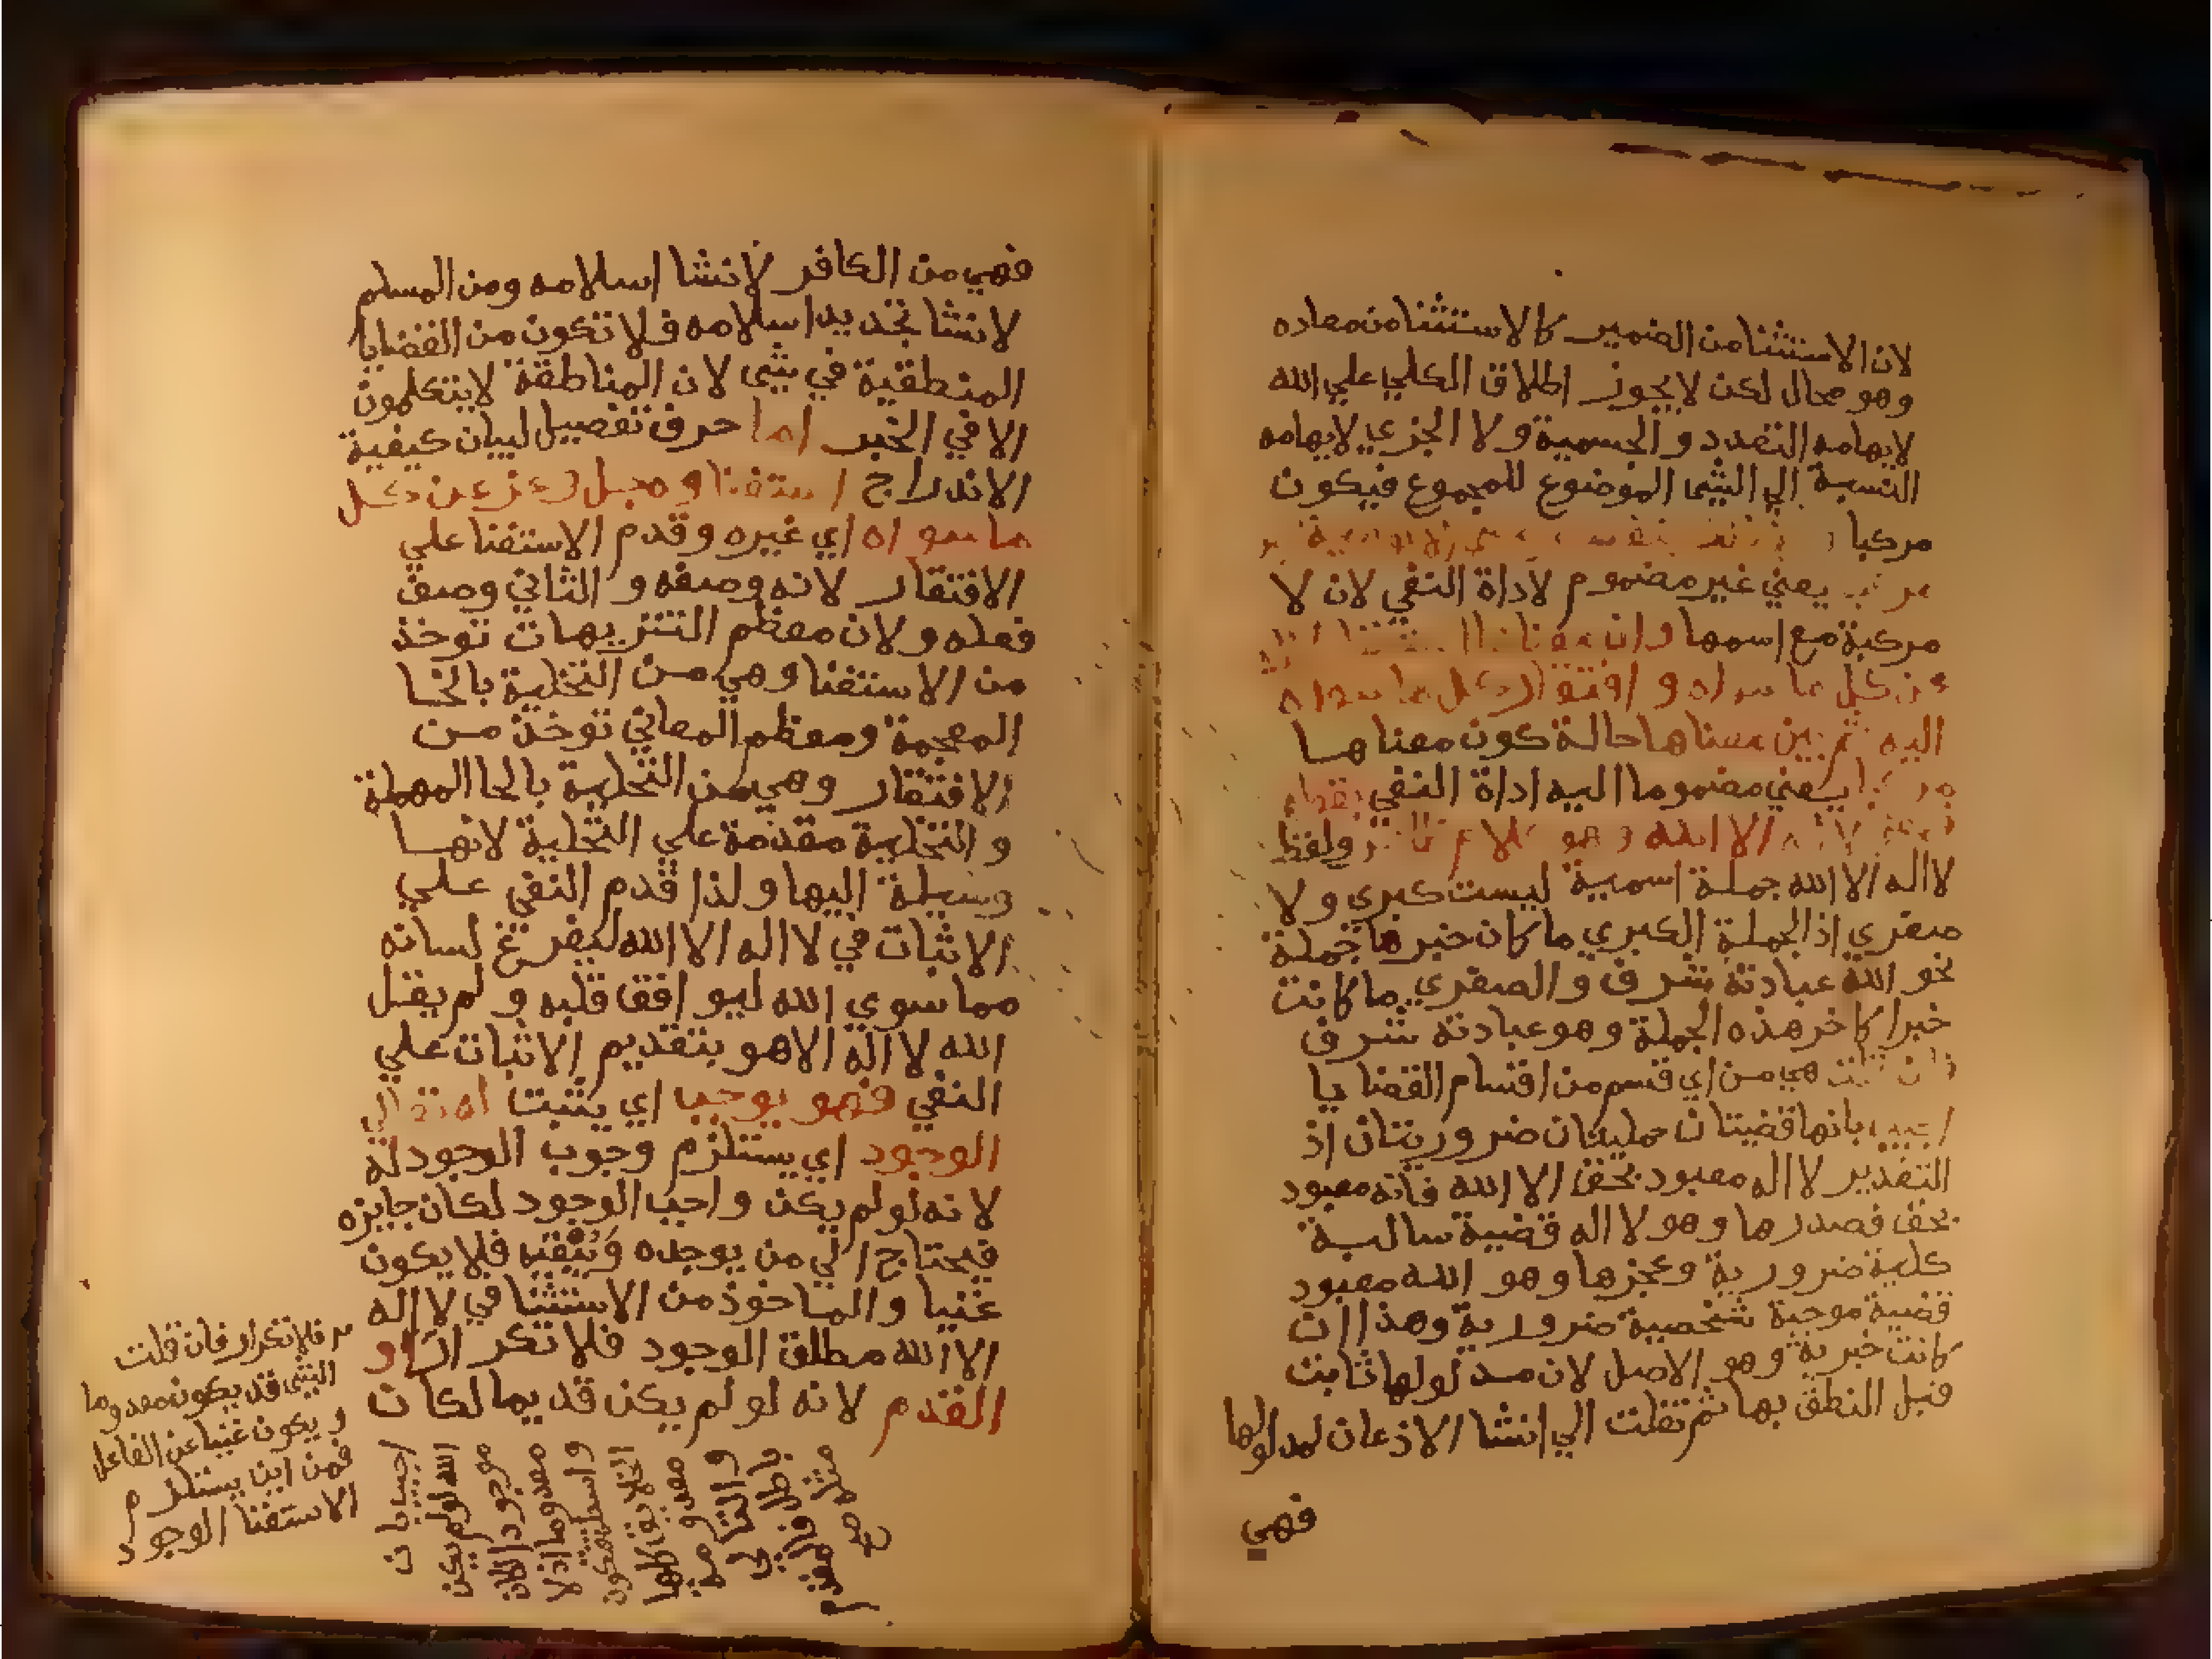 لان الاستثنا من الضمير كالاستثنا من معاده
وهو محال لكن لا يجوز اطلاق الكلي علي الله
لايهامه التعدد والجسمية ولا الجزي لايهامه
النسبة الي الشي الموضوع للمجموع فيكون
مركبا
يعني غير مضموم لاداة النفي لان لا
مركبة مع اسمها وان
عن كل ما سواه وافتقار كل ما سواه
اليه ثم بين معناها حالة كون معناها
يعني مضموما اليه اداة النفي بقوله
الا الله وهو كلام ولفظ
لا اله الا الله جملة اسمية ليست كبري ولا
صغري اذ الجملة الكبري ما كان خبرها جملة
نحو الله عبادته شرف والصغري ما كانت
خبرا كاخر هذه الجملة وهو عبادته شرف
فان قلت هي من اي قسم من اقسام القضايا
اجيب بانها قضيتان حمليتان ضروريتان اذ
التقدير لا اله معبود بحق الا الله فانه معبود
بحق فصدرها وهو لا اله قضية سالبة
كلية ضرورية وعجزها وهو الله معبود
قضية موجبة شخصية ضرورية وهذا ان
كانت خبرية وهو الاصل لان مدلولها ثابت
قبل النطق بها ثم نقلت الي انشا الاذعان لمدلولها
فهي
فهي من الكافر لانشا اسلامه ومن المسلم
لانشا تجديد اسلامه فلا تكون من القضايا
المنطقية في شي لان المناطقة لا يتكلمون
الا في الخبر اما حرف تفصيل لبيان كيفية
الاندراج استغنا وه جل وعز عن كل
ما سواه اي غيره وقدم الاستغنا علي
الافتقار لانه وصفه والثاني وصف
فعله ولان معظم التنزيهات توخذ
من الاستغنا وهي من التخلية بالخا
المعجمة ومعظم المعاني توخذ من
الافتقار وهي من التحلية بالحا المهملة
والتخلية مقدمة علي التحلية لانها
وسيلة اليها ولذا قدم النفي علي
الاثبات في لا اله الا الله ليفرغ لسانه
مما سوي الله ليوافق قلبه ولم يقل
الله لا اله الا هو بتقديم الاثبات علي
النفي فهو يوجب اي يثبت له تعالي
الوجود اي يستلزم وجوب الوجود له
لانه لو لم يكن واجب الوجود لكان جايزه
فيحتاج الي من يوجده ويتقنه فلا يكون
غنيا والماخوذ من الاستثنا في لا اله
الا الله مطلق الوجود فلا تكرار او
القدم لانه لو لم يكن قديما لكان
فلا تكرار فان قلت
الشي قد يكون معدوما
ويكون غنيا عن الفاعل
فمن اين يستلزم
الاستغنا الوجود
اجيب بان
الله لو لم يكن
موجودا لكان
معدوما اذ لا
واسطة